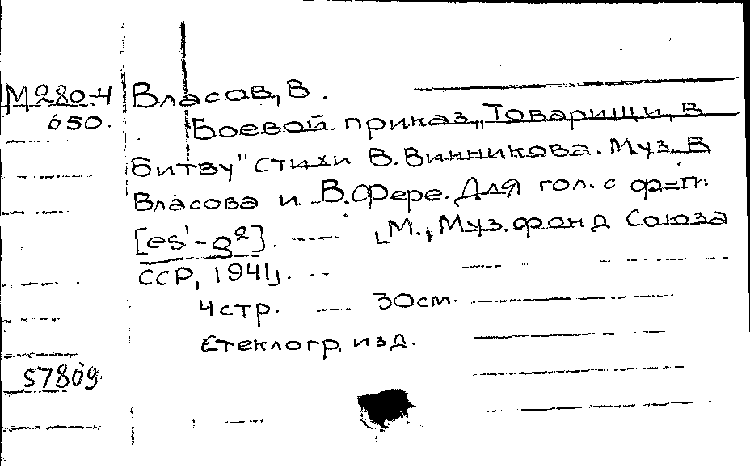 М280-4 Власов, В.
650. Боевой приказ „Товарищи, в
битву" Стихи В. Винникова. Муз. В
Власова и В. Фере. Для гол. с ф=п.
[es¹-g²]. — [М., Муз. фонд Союза
ССР, 1941].
4 стр. — 30см.
Стеклогр. изд.
57809